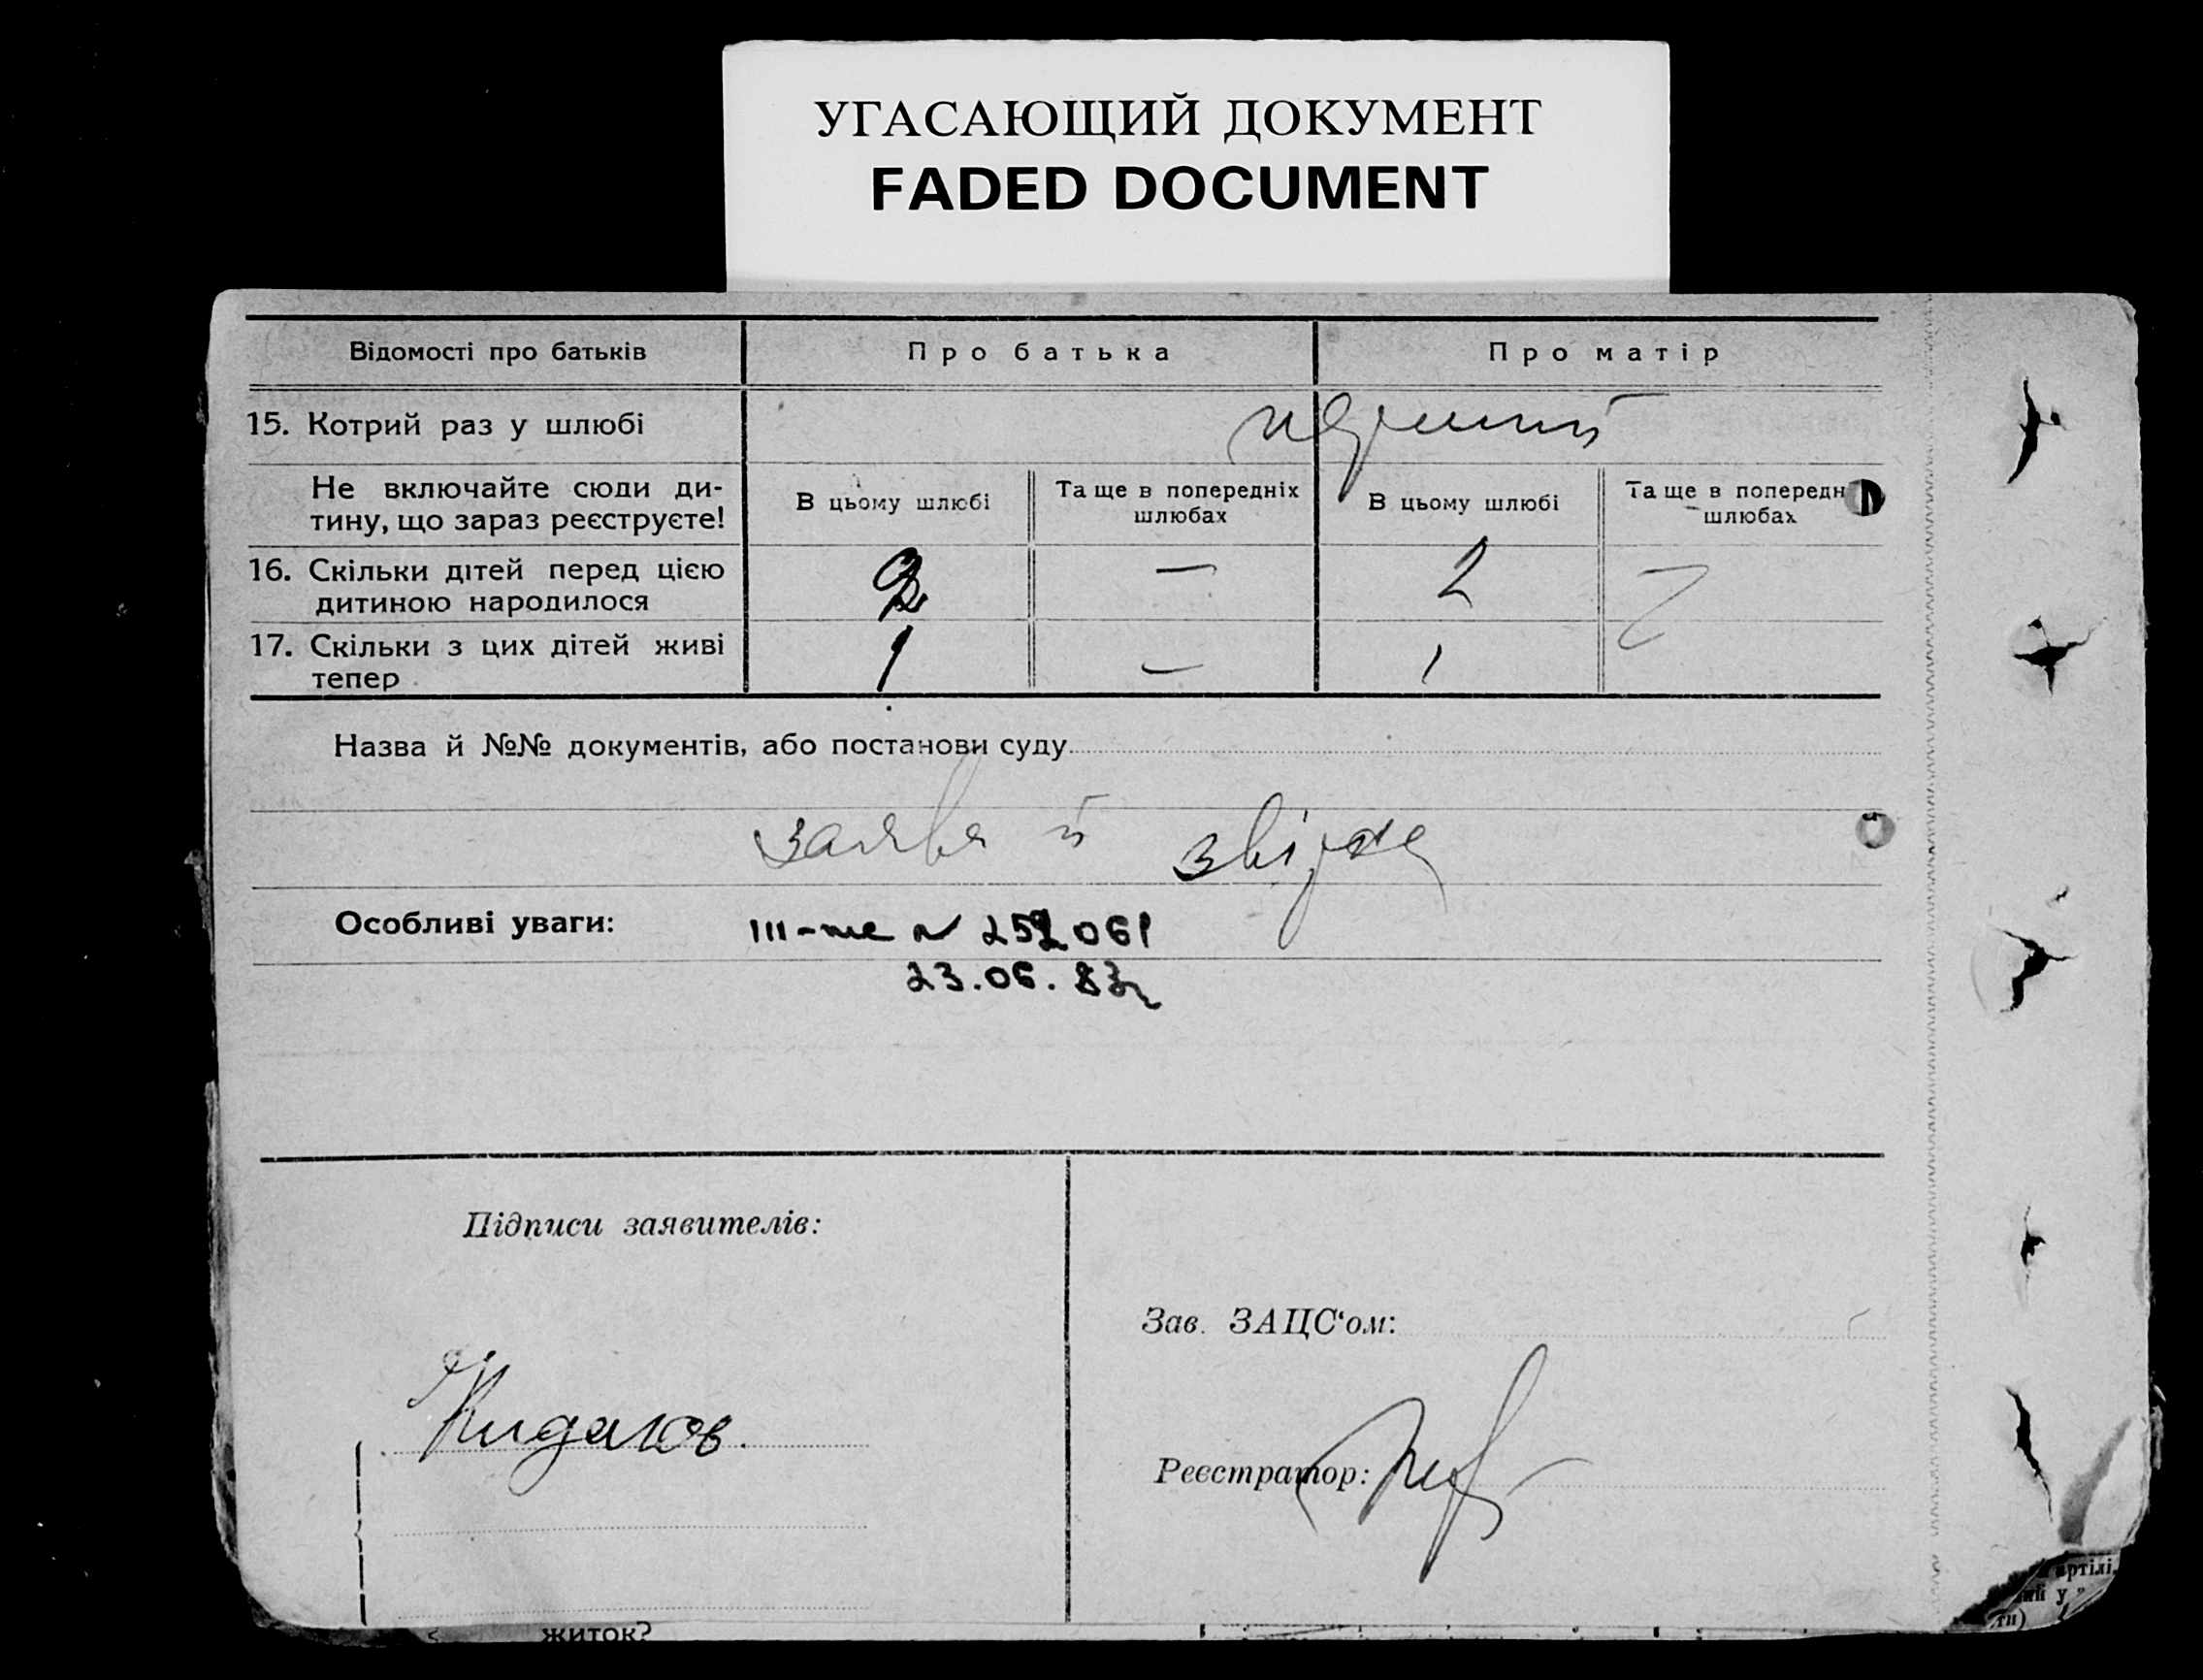 УГАСАЮЩИЙ ДОКУМЕНТ
FADED DOCUMENT
Відомості про батьків
Про батька
Про матір
15. Котрий раз у шлюбі
перший
Не включайте сюди ди-
тину, що зараз реєструєте!
В цьому шлюбі
Та ще в попередніх
шлюбах
В цьому шлюбі
Та ще в попередн
шлюбах
16. Скільки дітей перед цією
дитиною народилося
2 — 2
17. Скільки з цих дітей живі
тепер
1 — 1
Назва й №№ документів, або постанови суду
заява й
Особливі уваги:
III-те N 252061
23.06.83г
Підписи заявителів:
Зав. ЗАЦС'ом:
Реєстратор:
житок?
артілі
ий у
ти)